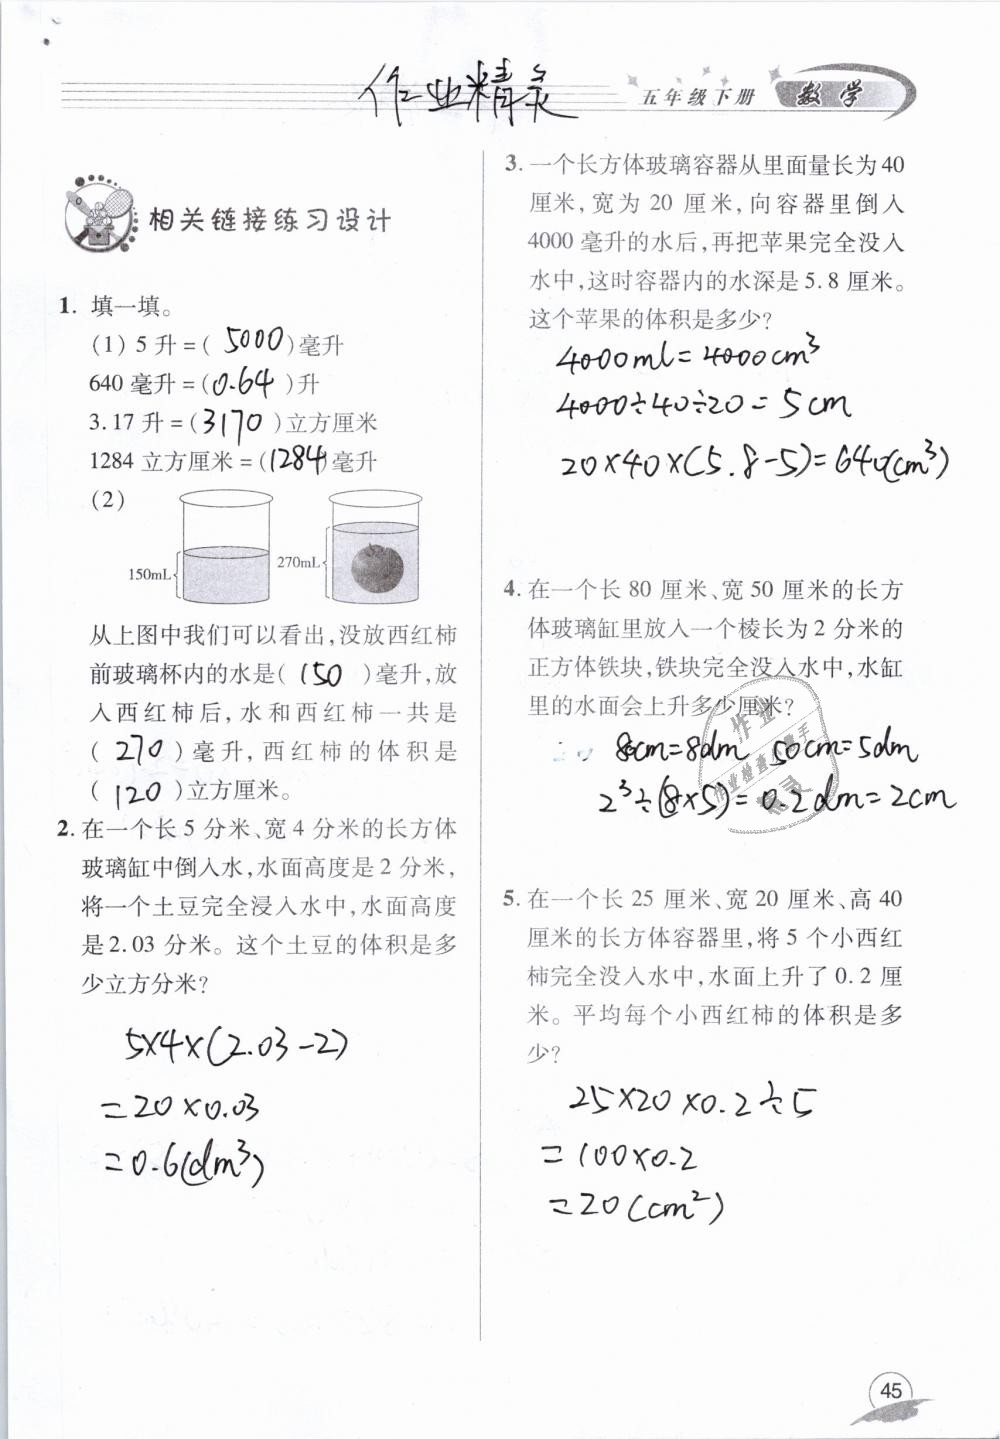 作业精灵
五年级下册 数学
相关链接练习设计
1. 填一填。
(1) 5 升 = ( 5000 )毫升
640 毫升 = (0.64 )升
3.17 升 = ( 3170 )立方厘米
1284 立方厘米 = (1284)毫升
(2)
150mL
270mL
从上图中我们可以看出,没放西红柿
前玻璃杯内的水是( 150 )毫升,放
入西红柿后,水和西红柿一共是
( 270 )毫升,西红柿的体积是
( 120 )立方厘米。
2. 在一个长 5 分米、宽 4 分米的长方体
玻璃缸中倒入水,水面高度是 2 分米,
将一个土豆完全浸入水中,水面高度
是2.03 分米。这个土豆的体积是多
少立方分米?
5×4×(2.03-2)
=20×0.03
=0.6(dm³)
3. 一个长方体玻璃容器从里面量长为 40
厘米,宽为 20 厘米,向容器里倒入
4000 毫升的水后,再把苹果完全没入
水中,这时容器内的水深是 5.8 厘米。
这个苹果的体积是多少?
4000ml=4000cm³
4000÷40÷20=5cm
20×40×(5.8-5)=640(cm³)
4. 在一个长 80 厘米、宽 50 厘米的长方
体玻璃缸里放入一个棱长为 2 分米的
正方体铁块,铁块完全没入水中,水缸
里的水面会上升多少厘米?
80cm=8dm 50cm=5dm
2³÷(8×5)=0.2dm=2cm
作业
作业检查小帮手
5. 在一个长 25 厘米、宽 20 厘米、高 40
厘米的长方体容器里,将 5 个小西红
柿完全没入水中,水面上升了 0.2 厘
米。平均每个小西红柿的体积是多
少?
25×20×0.2÷5
=100×0.2
=20(cm²)
45